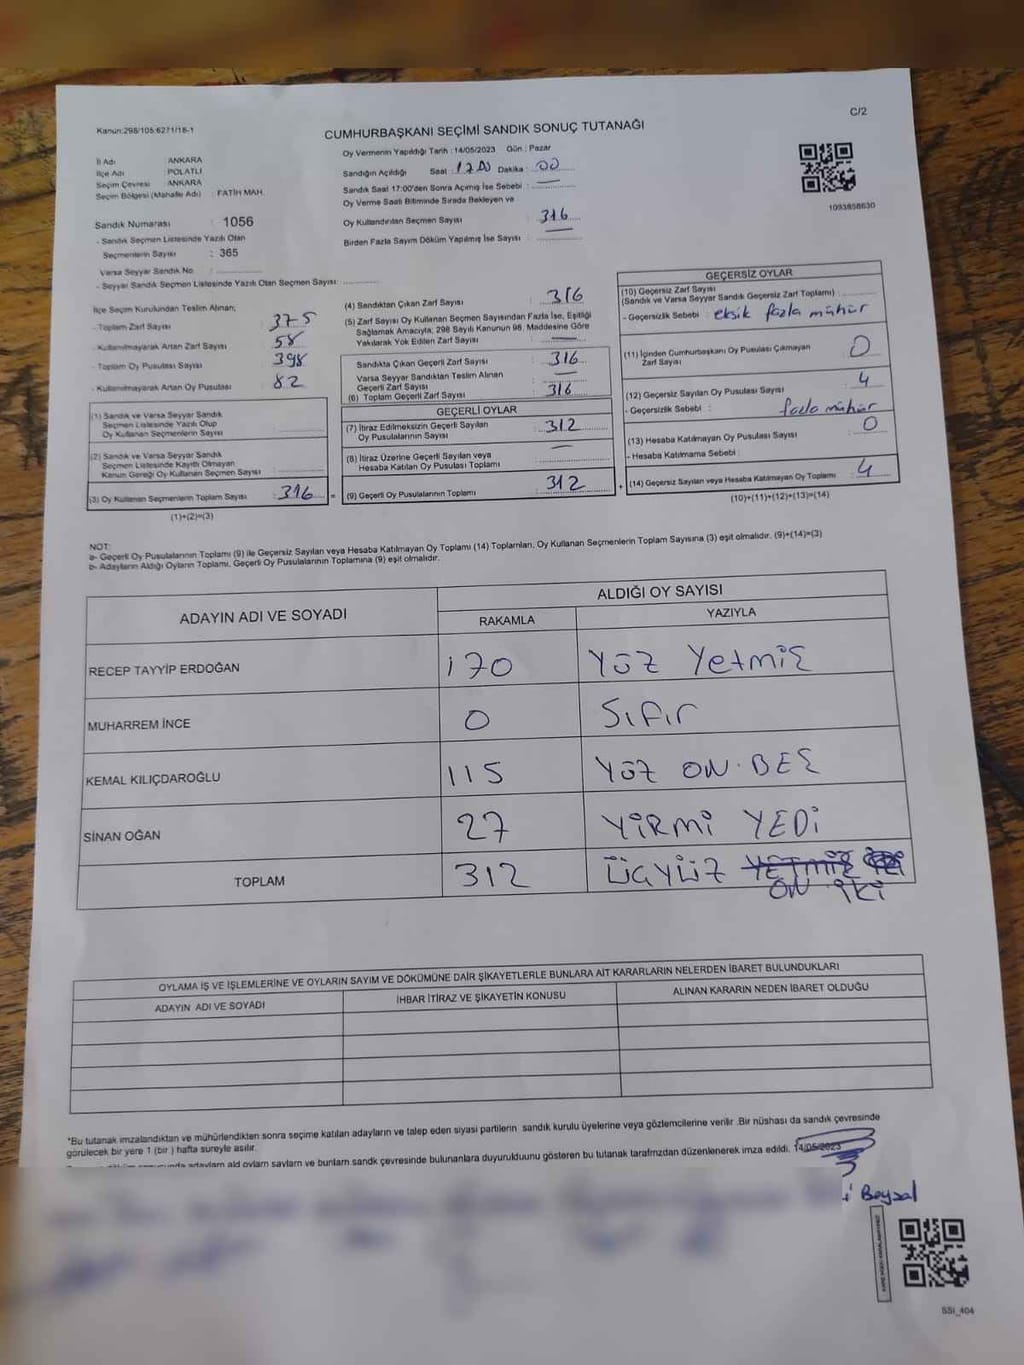 Kanun:298/105:6271/18-1
C/2
CUMHURBAŞKANI SEÇİMİ SANDIK SONUÇ TUTANAĞI
İl Adı : ANKARA
İlçe Adı : POLATLI
Seçim Çevresi : ANKARA
Seçim Bölgesi (Mahalle Adı) : FATİH MAH.
Sandık Numarası : 1056
- Sandık Seçmen Listesinde Yazılı Olan
Seçmenlerin Sayısı : 365
Varsa Seyyar Sandık No :
- Seyyar Sandık Seçmen Listesinde Yazılı Olan Seçmen Sayısı:
Oy Vermenin Yapıldığı Tarih : 14/05/2023 Gün : Pazar
Sandığın Açıldığı Saat : 17 00 Dakika : 00
Sandık Saat 17:00'den Sonra Açımış İse Sebebi :
Oy Verme Saati Bitiminde Sırada Bekleyen ve
Oy Kullandırılan Seçmen Sayısı : 316
Birden Fazla Sayım Döküm Yapılmış İse Sayısı :
1093858630
İlçe Seçim Kurulundan Teslim Alınan;
- Toplam Zarf Sayısı : 375
- Kullanılmayarak Artan Zarf Sayısı : 58
- Toplam Oy Pusulası Sayısı : 398
- Kullanılmayarak Artan Oy Pusulası : 82
(1) Sandık ve Varsa Seyyar Sandık
Seçmen Listesinde Yazılı Olup
Oy Kullanan Seçmenlerin Sayısı
(2) Sandık ve Varsa Seyyar Sandık
Seçmen Listesinde Kayıtlı Olmayan
Kanun Gereği Oy Kullanan Seçmen Sayısı
(3) Oy Kullanan Seçmenlerin Toplam Sayısı : 316
(1)+(2)=(3)
(4) Sandıktan Çıkan Zarf Sayısı : 316
(5) Zarf Sayısı Oy Kullanan Seçmen Sayısından Fazla İse, Eşitliği
Sağlamak Amacıyla; 298 Sayılı Kanunun 98. Maddesine Göre
Yakılarak Yok Edilen Zarf Sayısı :
Sandıkta Çıkan Geçerli Zarf Sayısı : 316
Varsa Seyyar Sandıktan Teslim Alınan
Geçerli Zarf Sayısı
(6) Toplam Geçerli Zarf Sayısı : 316
GEÇERLİ OYLAR
(7) İtiraz Edilmeksizin Geçerli Sayılan
Oy Pusulalarının Sayısı : 312
(8) İtiraz Üzerine Geçerli Sayılan veya
Hesaba Katılan Oy Pusulası Toplamı
(9) Geçerli Oy Pusulalarının Toplamı : 312
GEÇERSİZ OYLAR
(10) Geçersiz Zarf Sayısı
(Sandık ve Varsa Seyyar Sandık Geçersiz Zarf Toplamı) :
- Geçersizlik Sebebi : eksik fazla mühür
(11) İçinden Cumhurbaşkanı Oy Pusulası Çıkmayan
Zarf Sayısı : 0
(12) Geçersiz Sayılan Oy Pusulası Sayısı : 4
- Geçersizlik Sebebi : fazla mühür
(13) Hesaba Katılmayan Oy Pusulası Sayısı : 0
- Hesaba Katılmama Sebebi :
(14) Geçersiz Sayılan veya Hesaba Katılmayan Oy Toplamı : 4
(10)+(11)+(12)+(13)=(14)
NOT:
a- Geçerli Oy Pusulalarının Toplamı (9) ile Geçersiz Sayılan veya Hesaba Katılmayan Oy Toplamı (14) Toplamları, Oy Kullanan Seçmenlerin Toplam Sayısına (3) eşit olmalıdır. (9)+(14)=(3)
b- Adayların Aldığı Oyların Toplamı, Geçerli Oy Pusulalarının Toplamına (9) eşit olmalıdır.
ADAYIN ADI VE SOYADI
ALDIĞI OY SAYISI
RAKAMLA YAZIYLA
RECEP TAYYİP ERDOĞAN 170 Yüz Yetmiş
MUHARREM İNCE 0 Sıfır
KEMAL KILIÇDAROĞLU 115 YÜZ ON BEŞ
SİNAN OĞAN 27 YİRMİ YEDİ
TOPLAM 312 ÜÇYÜZ
ON İKİ
OYLAMA İŞ VE İŞLEMLERİNE VE OYLARIN SAYIM VE DÖKÜMÜNE DAİR ŞİKAYETLERLE BUNLARA AİT KARARLARIN NELERDEN İBARET BULUNDUKLARI
ADAYIN ADI VE SOYADI İHBAR İTİRAZ VE ŞİKAYETİN KONUSU ALINAN KARARIN NEDEN İBARET OLDUĞU
*Bu tutanak imzalandıktan ve mühürlendikten sonra seçime katılan adayların ve talep eden siyasi partilerin sandık kurulu üyelerine veya gözlemcilerine verilir .Bir nüshası da sandık çevresinde
görülecek bir yere 1 (bir ) hafta süreyle asılır.
bu tutanak tarafımızdan düzenlenerek imza edildi. 14/05/2023
Baysal
SSİ_404